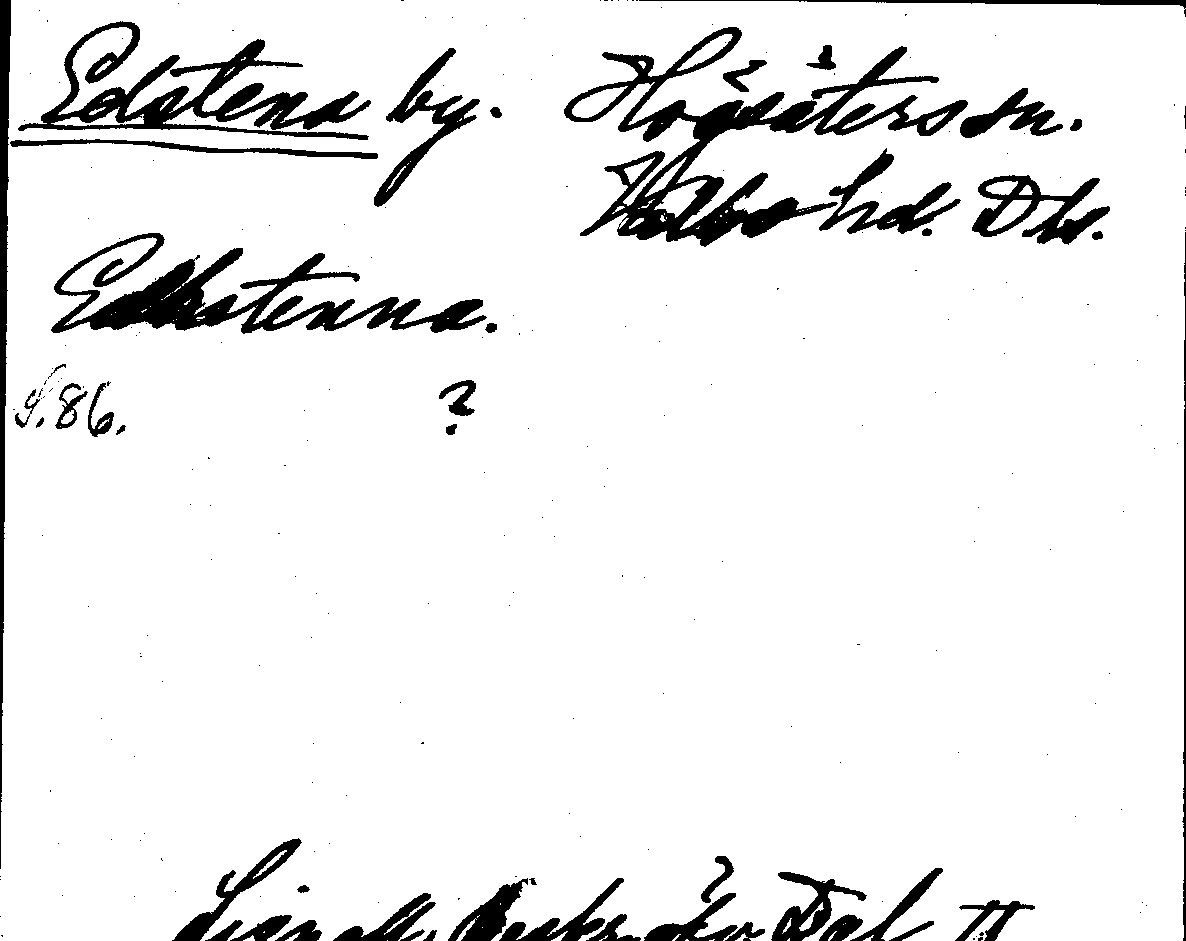 Edstena by. Högsäters sn.
Valbo hd. Dls.
Edhstenna.
S. 86. ?
Lignell, Beskr. öfv. Dal II